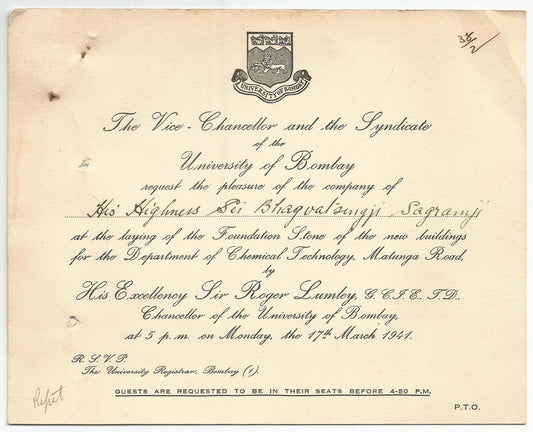 38/2
UNIVERSITY OF BOMBAY
The Vice-Chancellor and the Syndicate
of the
University of Bombay
request the pleasure of the company of
His Highness Sri Bhagvatsingji Sagramji
at the laying of the Foundation Stone of the new buildings
for the Department of Chemical Technology, Matunga Road,
by
His Excellency Sir Roger Lumley, G.C.I.E. T.D.
Chancellor of the University of Bombay,
at 5 p.m. on Monday, the 17th March 1941.
R.S.V.P.
The University Registrar, Bombay (1).
GUESTS ARE REQUESTED TO BE IN THEIR SEATS BEFORE 4-50 P.M.
P.T.O.